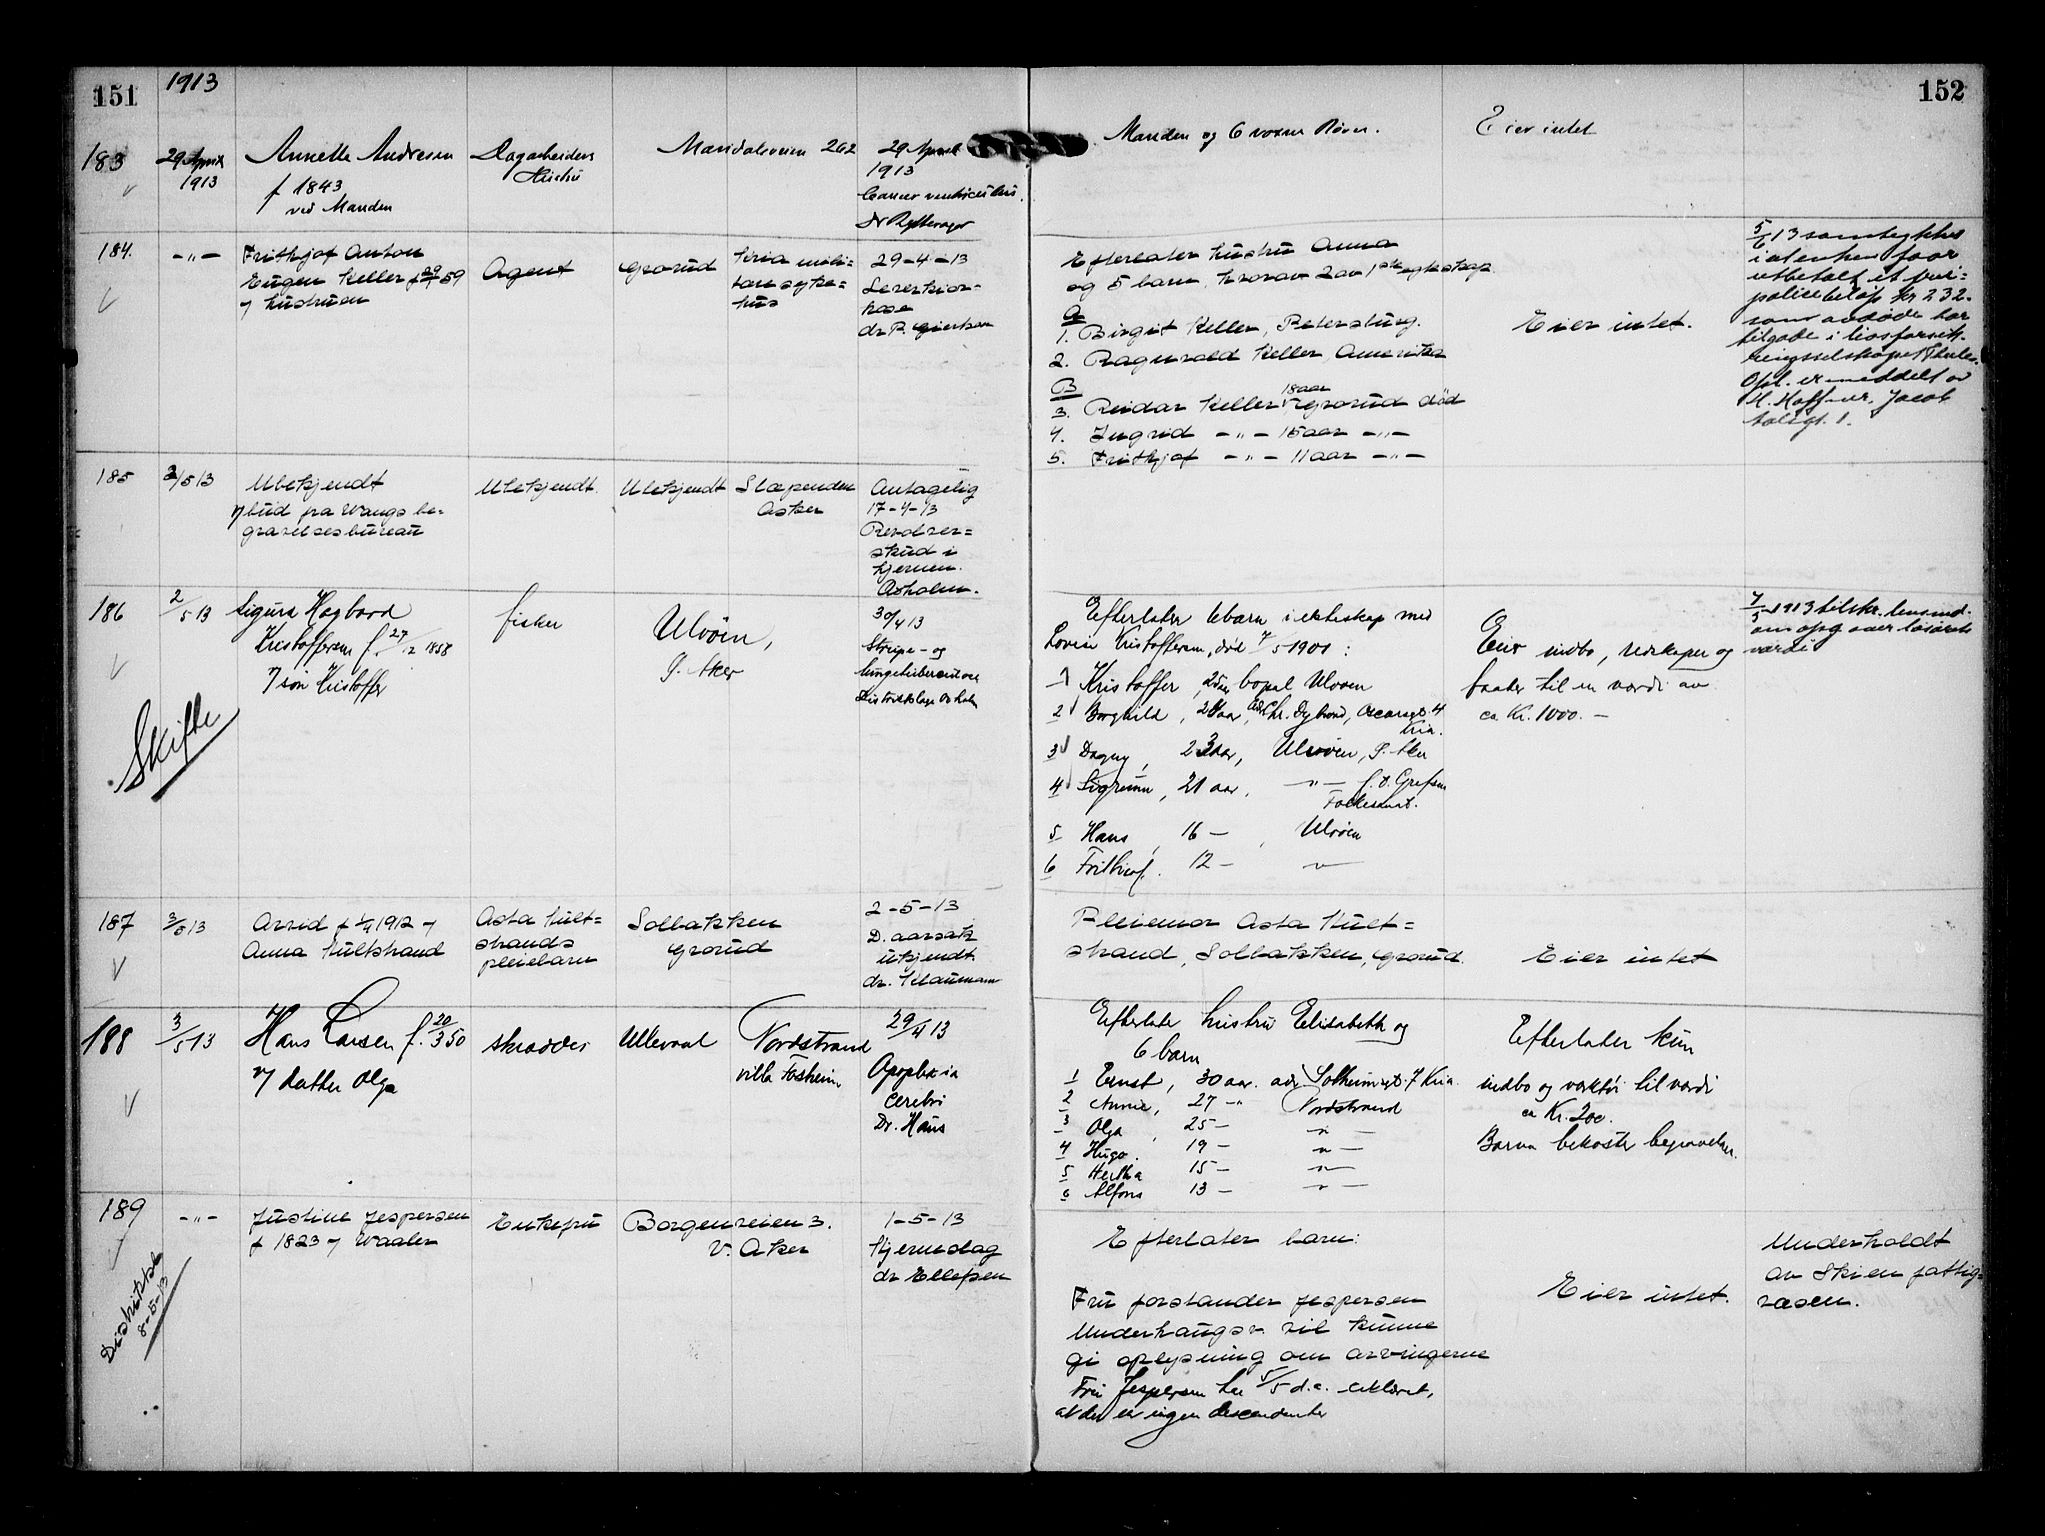 151
1913
152
183
29 April
1913
Annette Andresen
f 1843
ved Manden
Dagarbeiders
Hustru
Maridalsveien 262
29 April
1913
Cancer ventriculi
Manden og 6 voxne Børn.
Eier intet
184.
-"-
Frithjof Anton
Eugen Keller f 59
v/ hustruen
Agent
Grorud
Kria mili=
tære syke=
hus
29-4-13
dr P.
Efterlater hustru Anna
og 5 barn, hvorav 2 av 1ste egteskap
A
1. Birgit Keller, Petersburg.
2. Ragnvald Keller Amerika
B
18 aar
3. Reidar Keller Grorud død
4. Ingrid -"- 15 aar -"-
5. Frithjof -"- 11 aar -"-
Eier intet.
5/6 13 samtykkes
i at enken faar
utbetalt et
policebeløp kr 232.
som avdøde har
tilgode i livsforsik-
ringsselskapet Thule.
Opl. er meddelt av
H. Jacob
Aalsgt. 1.
185
2/5 13
Ubekjendt
v/ bud fra Wangs be-
gravelsesbureau
Ubekjendt.
Ubekjendt
Slæpenden
Asker
Antagelig
17-4-13
Revolver=
skud i
hjernen.
Axholm.
186
2/5 13
Sigurd Hagbard
Kristoffersen f. 27/12 1858
v/ søn Kristoffer
Skifte
fisker
Ulvøen,
Ø. Aker
30/4 13
Strupe- og
lungetuberculose
Distriktslæge Axholm
Efterlater 6 barn i ekteskap med
Lovise Kristoffersen, død 7/5 1901:
1 Kristoffer, 25 aar, bopæl Ulvøen
2 Borghild, 24 aar, adr. Chr. Dybvad, Oscarsgt. 4
Kria.
3 Dagny, 23 aar, Ulvøen, Ø. Aker
4 Sigrunn, 21 aar, -"- f. t. Grefsen
Folkesanat.
5 Hans, 16 -, Ulvøen
6 Frithjof. 12 - -"-
Eier indbo, redskaper og
baater til en værdi av
ca. Kr. 1000. -
7/5 1913 tilskr. lensmd.
om opg over løsørets
værdi
187
3/5 13
Arvid f 1/4 1912 v/
Anna Hultstrand
Asta Hult=
strands
pleiebarn
Solbakken
Grorud
2-5-13
D. aarsak
ukjendt
dr. Klaumann
Pleiemor Asta Hult=
strand, Solbakken, Grorud.
Eier intet
188
3/5 13
Hans Larsen f. 20/3 50
v/ datter Olga
skrædder
Ullevaal
Nordstrand
villa Fosheim
29/4 13
Apoplexia
cerebri
Dr. Haus
Efterlater hustru Elisabeth og
6 barn
1 Ernst, 30 aar. adr. Solheimsgt. 7 Kria.
2 Annie, 27 -" Nordstrand
3 Olga, 25 - -"-
4 Hugo. 19 - -"-
5 Hertha 15 - -"-
6 Alfons 13 - -"-
Efterlater kun
indbo og verktøi til værdi
ca Kr. 200.
Barna bekoster begravelsen.
189
-"-
Justine Jespersen
f 1823 v/ Waaler
Distriktsl
8-5-13
Enkefru
Borgenveien 3.
V. Aker
1-5-13
Hjerneslag
dr Ellefsen
Efterlater barn:
Fru forstander Jespersen
Underhaugsv. vil kunne
gi oplysning om arvingerne
Fru Jespersen har 5/5 d.a. erklæret,
at der er ingen descendenter
Eier intet.
Underholdt
av Skien fattig=
væsen.